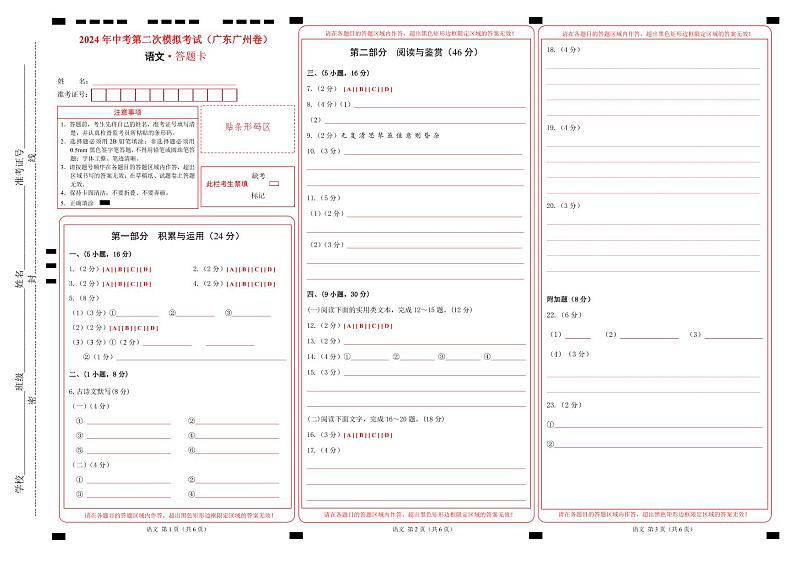 学校
班级
姓名
准考证号
密
封
线
2024 年中考第二次模拟考试（广东广州卷）
语文·答题卡
姓 名：
准考证号：
注意事项
1．答题前，考生先将自己的姓名，准考证号填写清
楚，并认真检查监考员所粘贴的条形码。
2．选择题必须用 2B 铅笔填涂；非选择题必须用
0.5mm 黑色签字笔答题，不得用铅笔或圆珠笔答
题；字体工整、笔迹清晰。
3．请按题号顺序在各题目的答题区域内作答，超出
区域书写的答案无效；在草稿纸、试题卷上答题
无效。
4．保持卡面清洁，不要折叠、不要弄破。
5．正确填涂
贴条形码区
此栏考生禁填
缺考
标记
第一部分 积累与运用（24 分）
一、（5 小题，16 分）
1.（2 分）[A][B][C][D] 2.（2 分）[A][B][C][D]
3.（2 分）[A][B][C][D] 4.（2 分）[A][B][C][D]
5.（8 分）
（1）（3 分）① ② ③
（2）（2 分）[A][B][C][D]
（3）（3 分）①（2 分）
②（1 分）
二、（1 小题，8 分）
6.古诗文默写(8 分)
（一）（4 分）
① ②
③ ④
（二）（4 分）
① ②
③ ④
请在各题目的答题区域内作答，超出黑色矩形边框限定区域的答案无效！
语文 第 1 页（共 6 页）
请在各题目的答题区域内作答，超出黑色矩形边框限定区域的答案无效！
第二部分 阅读与鉴赏（46 分）
三、（5 小题，16 分）
7.（2 分）[A][B][C][D]
8.（4 分）（1）
（2）
9.（2 分）
10.（3 分）
11.（5 分）
（1）（2 分）
（2）（3 分）
四、（9 小题，30 分）
(一)阅读下面的实用类文本，完成 12～15 题。（12 分）
12.（2 分）[A][B][C][D]
13.（2 分）
14.（4 分）① ② ③ ④
15.（3 分）
(二)阅读下面文字，完成 16～20 题。（18 分）
16.（3 分）[A][B][C][D]
17.（4 分）
请在各题目的答题区域内作答，超出黑色矩形边框限定区域的答案无效！
语文 第 2 页（共 6 页）
请在各题目的答题区域内作答，超出黑色矩形边框限定区域的答案无效！
18.（4 分）
19.（4 分）
20.（3 分）
附加题（8 分）
22.（6 分）
（1） （2） （3）
（4）（3 分）
23.（2 分）
①
②
请在各题目的答题区域内作答，超出黑色矩形边框限定区域的答案无效！
语文 第 3 页（共 6 页）